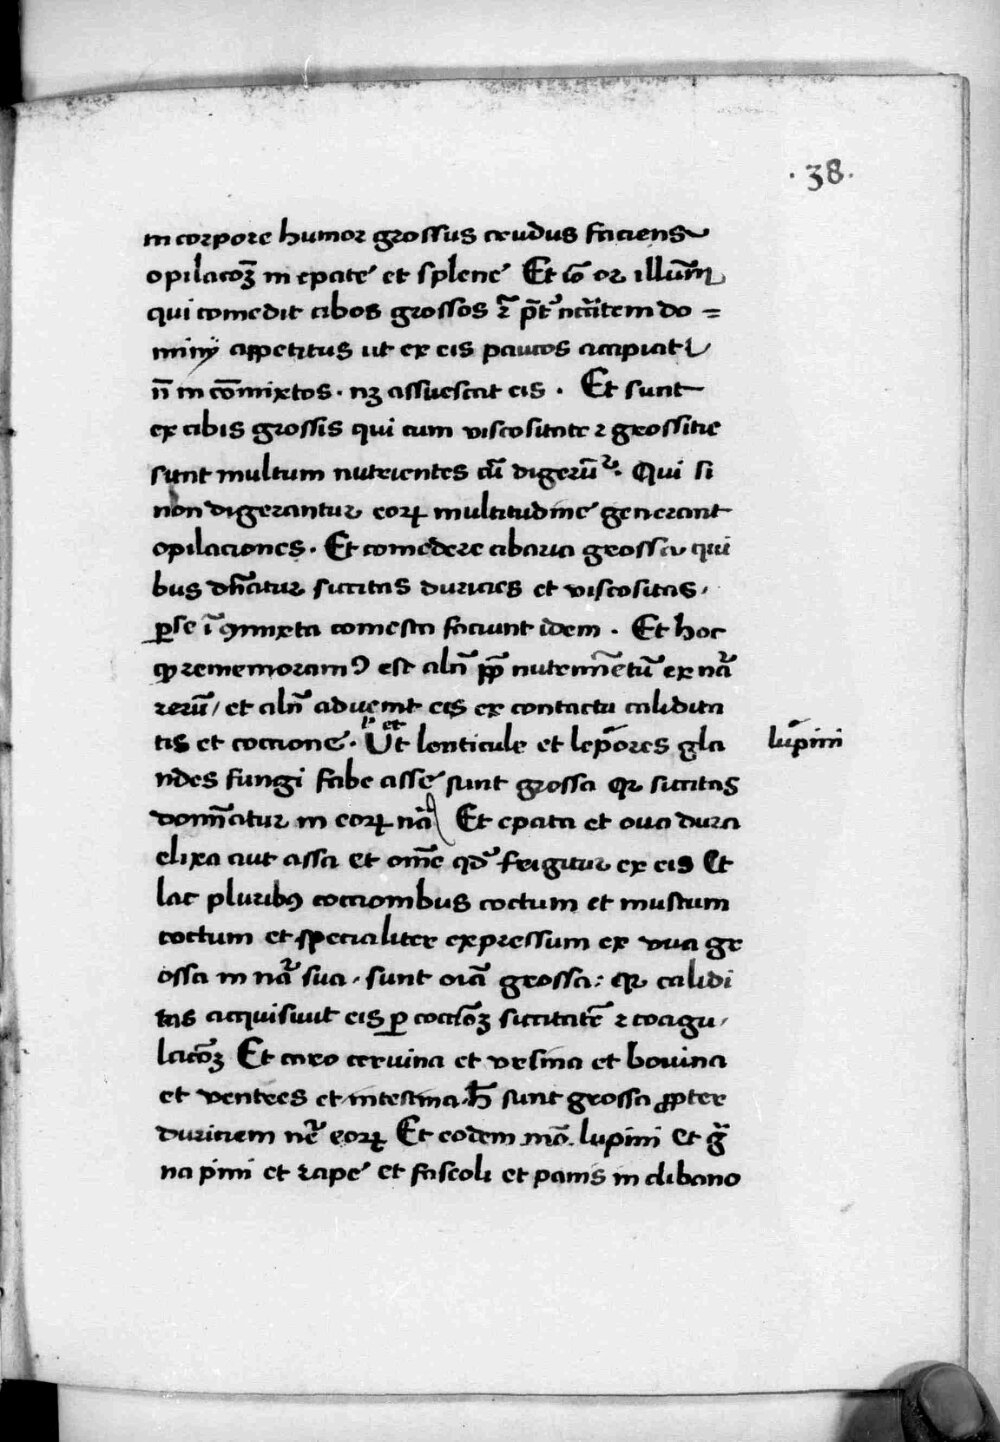 .38.
in corpore humor grossus crudus faciens
opilacõꝫ in epate et splene Et
qui comedit cibos grossos
minij appetitus ut ex eis paucos accipiat
n̄ in cōmixtos. nꝫ assuescat eis. Et sunt
ex cibis grossis qui cum viscositate ⁊ grossitie
sunt multum nutrientes cū digerūr. Qui si
non digerantur eoꝝ multitudine generant
opilaciones. Et comedere cibaria grossa qui
bus dn̄atur siccitas duricies et viscositas.
ꝑse ī ꝯmixta comesta faciunt idem. Et hoc
rememoram est aln̄ nutrimētū ex nāʳ
rerū / et aln̄ advenit eis ex contactu calidita
tis et coccione. Ut lenticule et lep̄ores gla
lup̄ini
ndes fungi fabe asse sunt grossa qꝛ siccitas
domn̄atur in eoꝝ nā Et epata et ova dura
elixa aut assa et om̄e qd̄ frigitur ex eis Et
lac pluribꝰ coccionibus coctum et mustum
coctum et specialiter expressum ex vua gr
ossa in nāʳ sua. sunt oīa grossa: qꝛ calidi
tas acquisiuit eis ꝑ coccõꝫ siccitatē ⁊ coagu,
lacõꝫ Et caro cervina et vrsina et bovina
et ventres et intestina. h̄ sunt grossa ꝓpter
duriciem nr̄e eoꝝ Et eodem mō. lupini et gͣ
na pini et rape et faseoli et panis in clibano